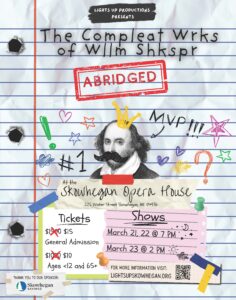 LIGHTS UP PRODUCTIONS
PRESENTS
The Compleat Wrks
of Wllm Shkspr
ABRIDGED
MVP!!!
!
#1
?
At the
Skowhegan Opera House
225 Water Street Skowhegan, ME 04976
Tickets
$15
General Admission
$10
Ages <12 and 65+
Shows
March 21, 22 @ 7 PM
March 23 @ 2 PM
FOR MORE INFORMATION VISIT:
LIGHTSUPSKOWHEGAN.ORG
THANK YOU TO OUR SPONSOR:
Skowhegan
SAVINGS